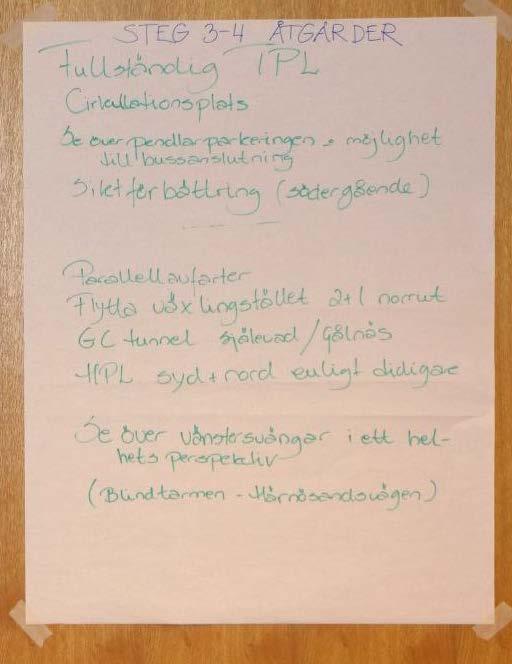 STEG 3-4 ÅTGÄRDER
Fullständig TPL
Cirkullationsplats
Se över pendlarparkeringen + möjlighet
till bussanslutning
Siktförbättring (södergående)
Parallellavfarter
Flytta växlingstället 2+1 norrut
GC tunnel själevad / Gålnäs
HPL syd + nord enligt tidigare
Se över vänstersvängar i ett hel-
hets perspektiv
(Blindtarmen - Härnösandsvägen)